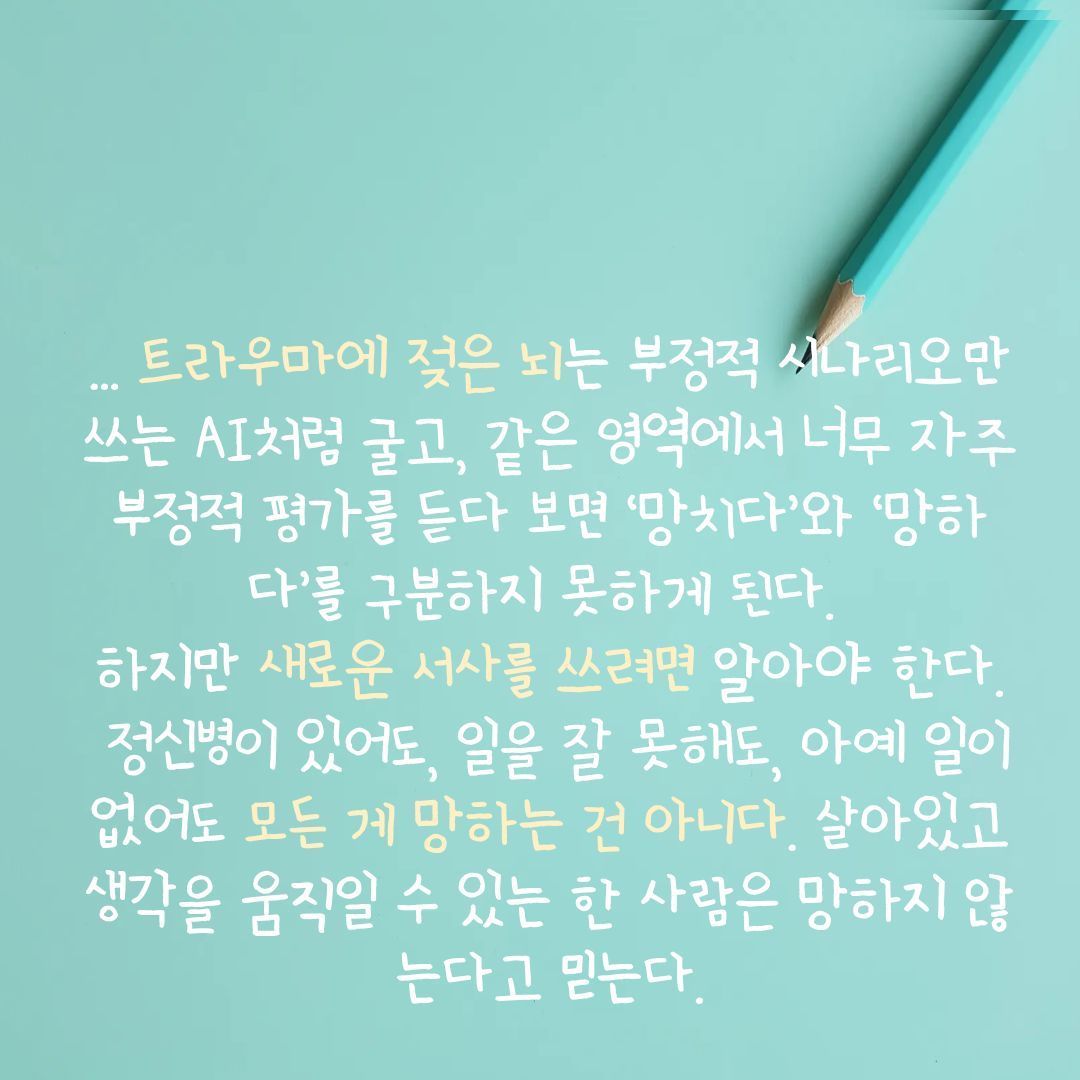 ... 트라우마에 젖은 뇌는 부정적 시나리오만
쓰는 AI처럼 굴고, 같은 영역에서 너무 자주
부정적 평가를 듣다 보면 ‘망치다’와 ‘망하
다’를 구분하지 못하게 된다.
하지만 새로운 서사를 쓰려면 알아야 한다.
정신병이 있어도, 일을 잘 못해도, 아예 일이
없어도 모든 게 망하는 건 아니다. 살아있고
생각을 움직일 수 있는 한 사람은 망하지 않
는다고 믿는다.